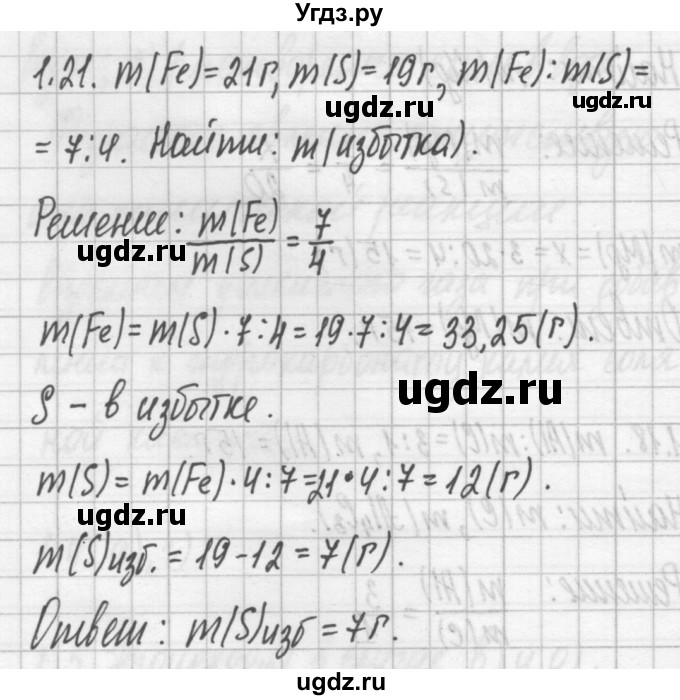 Угдз.ру
1.21. m(Fe)=21г, m(S)=19г, m(Fe):m(S)=
ugdz.ru ugdz.ru
=7:4. Найти: m(избытка).
Решение: m(Fe)/m(S) = 7/4
ugdz.ru
m(Fe)=m(S)·7:4=19·7:4=33,25(г).
ugdz.ru
S – в избытке.
m(S)=m(Fe)·4:7=21·4:7=12(г).
ugdz.ru
m(S)изб.=19-12=7(г).
Ответ: m(S)изб=7г.
ugdz.ru